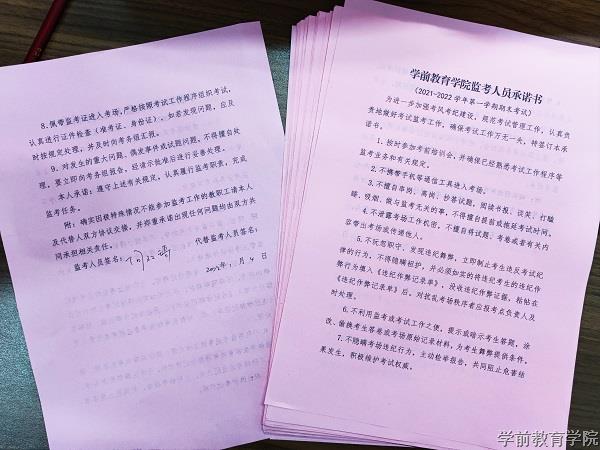 8.佩带监考证进入考场,严格按照考试工作程序组织考试,
认真进行证件检查(准考证、身份证)。如若发现问题,应及
时按规定处理,并及时向考务组汇报。
9.对发生的重大问题、偶发事件或试题问题,不得擅自处
理,要立即向考务组报告,经请示批准后进行妥善处理。
本人承诺:遵守上述有关规定,认真履行监考职责,完成
监考任务。
附:确实因极特殊情况不能参加监考工作的教职工请本人
及代替人双方协议交接,并郑重承诺出现任何问题均由双方共
同承担相关责任。
监考人员签名: 代替监考人员签名:
2022年1月4日
学前教育学院监考人员承诺书
(2021-2022 学年第一学期期末考试)
为进一步加强考风考纪建设,规范考试管理工作,认真负
责地做好考试监考工作,确保考试工作万无一失,特签订本承
诺书。
1.按时参加考前培训会,并确保已经熟悉考试工作程序等
监考业务和有关规定。
2.不携带手机等通信工具进入考场。
3.不擅自串岗、离岗、抄答试题,阅读书报、谈笑、打瞌
睡、吸烟、做与监考无关的事,不得擅自提前或拖延考试时间。
4.不泄露考场工作机密,不擅自将试题、考卷或者有关内
容带出考场或传递他人。
5.不玩忽职守,发现违纪舞弊,立即制止考生违反考试纪
律的行为,不得隐瞒袒护,并必须如实的将违纪考生的违纪作
弊行为填入《违纪作弊记录单》,没收违纪作弊证据,粘贴在
《违纪作弊记录单》后。对扰乱考场秩序者应报考点负责人及
时处理。
6.不利用监考或考试工作之便,提示或暗示考生答题,涂
改、偷换考生答卷或考场原始记录材料,为考生舞弊提供条件。
7.不隐瞒考场违纪行为,主动检举报告,共同阻止危害结
果发生,积极维护考试权威。
学前教育学院